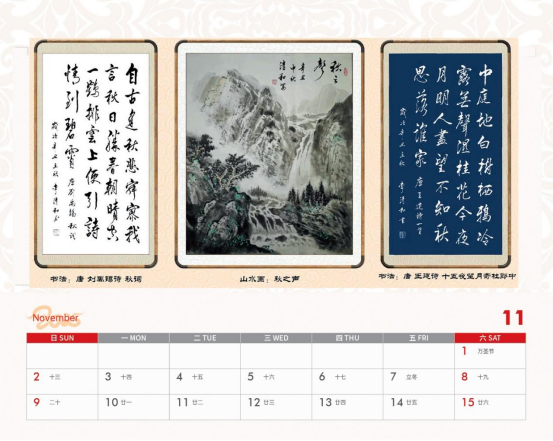 自古逢秋悲寂寥我
言秋日勝春朝晴空
一鶴排雲上便引詩
情到碧霄
秋之聲
辛丑
中秋
清和寫
中庭地白樹棲鴉冷
露無聲濕桂花今夜
月明人盡望不知秋
思落誰家 唐王建詩一首
书法：唐 刘禹锡诗 秋词
山水画：秋之声
书法：唐 王建诗 十五夜望月寄杜郎中
November
11
日 SUN 一 MON 二 TUE 三 WED 四 THU 五 FRI 六 SAT
1 万圣节
2 十三 3 十四 4 十五 5 十六 6 十七 7 立冬 8 十九
9 二十 10 廿一 11 廿二 12 廿三 13 廿四 14 廿五 15 廿六